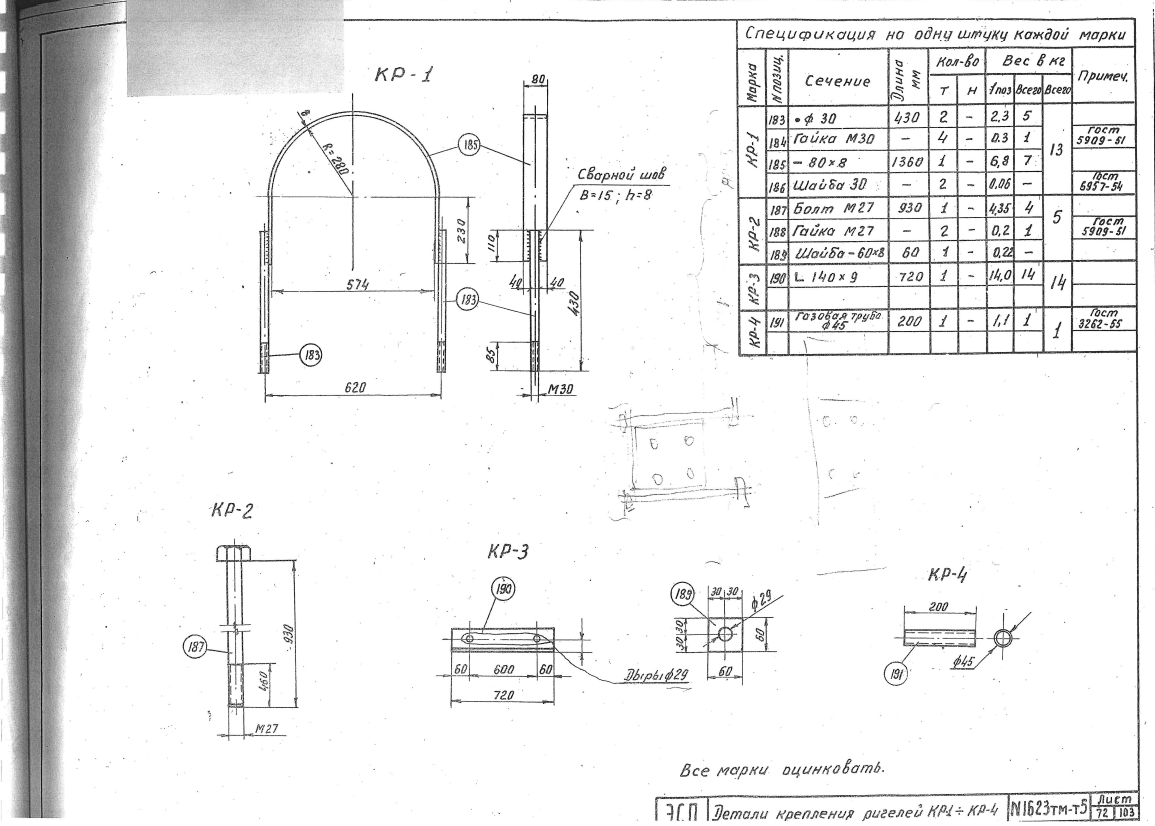 КР-1
8
R=280
185
230
574
183
183
620
80
Сварной шов
В=15; h=8
110
40
40
430
85
М30
Спецификация на одну штуку каждой марки
Марка N позиц. Сечение Длина мм Кол-во Вес в кг Примеч.
т н 1 поз Всего Всего
КР-1 183 • ф 30 430 2 - 2,3 5 13
184 Гайка М30 - 4 - 0.3 1 Гост 5909-51
185 - 80×8 1360 1 - 6,8 7
186 Шайба 30 - 2 - 0,06 - Гост 6957-54
КР-2 187 Болт М27 930 1 - 4,35 4 5
188 Гайка М27 - 2 - 0,2 1 Гост 5909-51
189 Шайба-60×8 60 1 - 0,22 -
КР-3 190 ∟ 140×9 720 1 - 14,0 14 14
КР-4 191 Газовая труба ф45 200 1 - 1,1 1 1 Гост 3262-55
КР-2
187
930
460
М27
КР-3
190
60 600 60
720
Дыры ф29
189
30 30
ф29
30 30
60
60
КР-4
200
191
ф45
Все марки оцинковать.
ЭСП Детали крепления ригелей КР1÷КР-4 N1623тм-т5 Лист
72 103